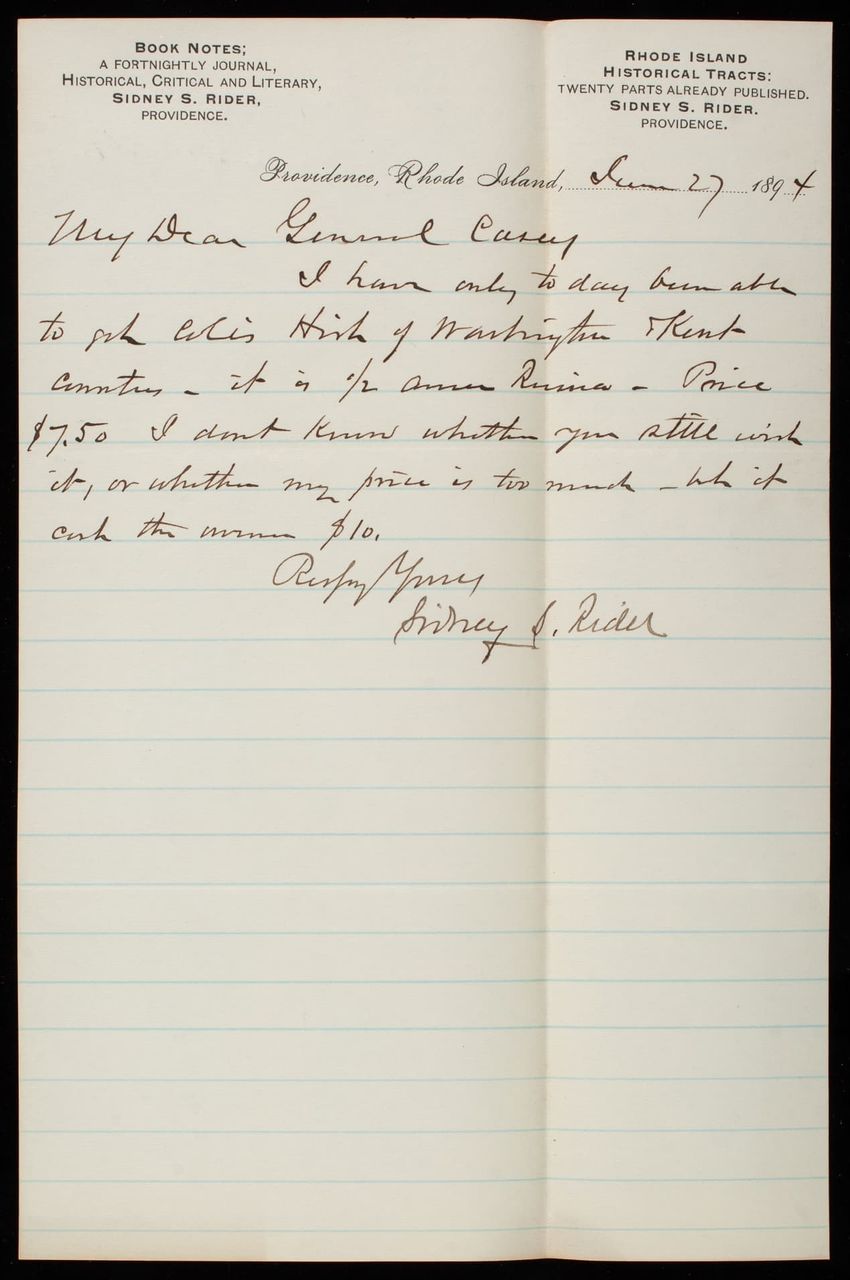 BOOK NOTES;
A FORTNIGHTLY JOURNAL,
HISTORICAL, CRITICAL AND LITERARY,
SIDNEY S. RIDER,
PROVIDENCE.
RHODE ISLAND
HISTORICAL TRACTS:
TWENTY PARTS ALREADY PUBLISHED.
SIDNEY S. RIDER.
PROVIDENCE.
Providence, Rhode Island, June 27 1894
My Dear General Casey
I have only to day been able
to get Coles Hist of Washington & Kent
Counties - it is 1/2 Russia - Price
$7.50 I dont know whether you still wish
it, or whether my price is too much - but it
cost the owner $10.
Respy Yours
Sidney S. Rider